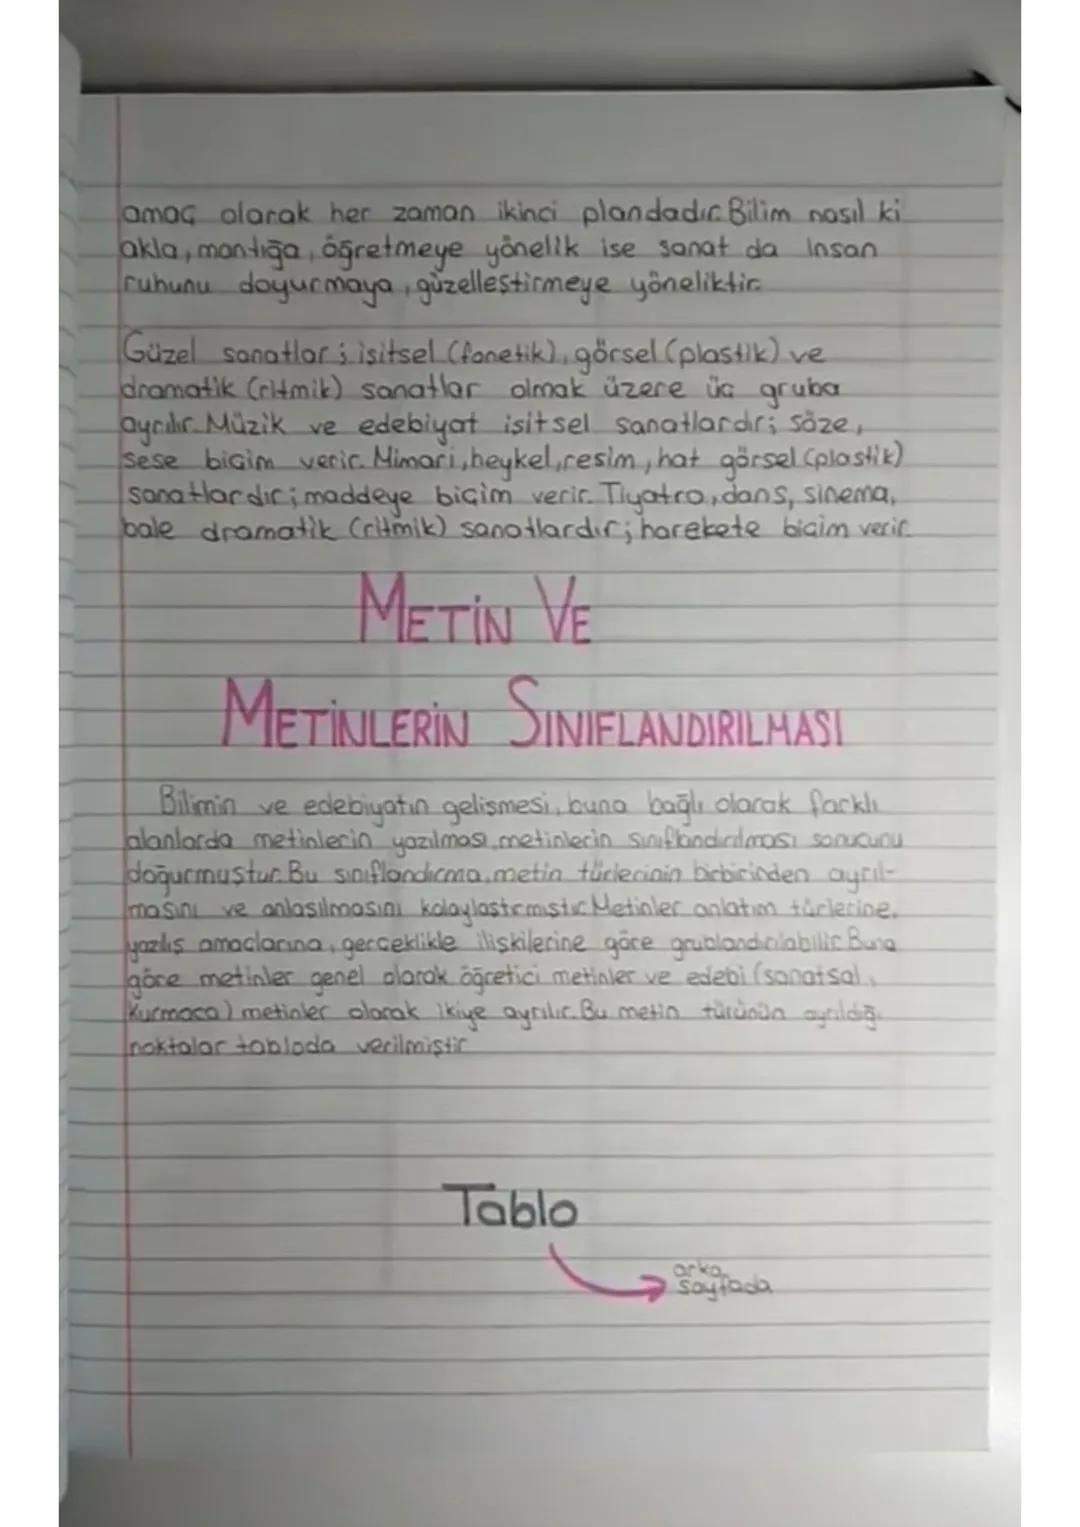 amaç olarak her zaman ikinci plandadır. Bilim nasıl ki
akla, mantığa, öğretmeye yönelik ise sanat da insan
ruhunu doyurmaya, güzelleştirmeye yöneliktir.
Güzel sanatlar; işitsel (fonetik), görsel (plastik) ve
dramatik (ritmik) sanatlar olmak üzere üç gruba
ayrılır. Müzik ve edebiyat işitsel sanatlardır; söze,
sese biçim verir. Mimari, heykel, resim, hat görsel (plastik)
sanatlardır; maddeye biçim verir. Tiyatro, dans, sinema,
bale dramatik (ritmik) sanatlardır; harekete biçim verir.
METİN VE
METİNLERİN SINIFLANDIRILMASI
Bilimin ve edebiyatın gelişmesi, buna bağlı olarak farklı
alanlarda metinlerin yazılması, metinlerin sınıflandırılması sonucunu
doğurmuştur. Bu sınıflandırma, metin türlerinin birbirinden ayrıl-
masını ve anlaşılmasını kolaylaştırmıştır. Metinler anlatım türlerine,
yazılış amaçlarına, gerçeklikle ilişkilerine göre grublandırılabilir. Buna
göre metinler genel olarak öğretici metinler ve edebi (sanatsal,
kurmaca) metinler olarak ikiye ayrılır. Bu metin türünün ayrıldığı
noktalar tabloda verilmiştir
Tablo
arka
sayfada